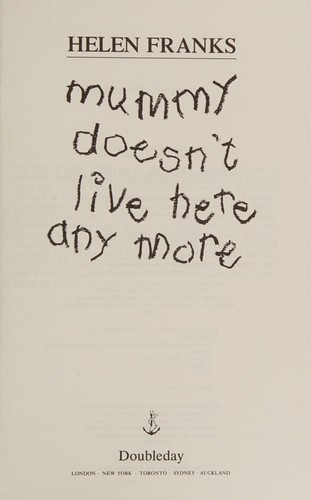 HELEN FRANKS
mummy
doesn't
live here
any more
Doubleday
LONDON · NEW YORK · TORONTO · SYDNEY · AUCKLAND